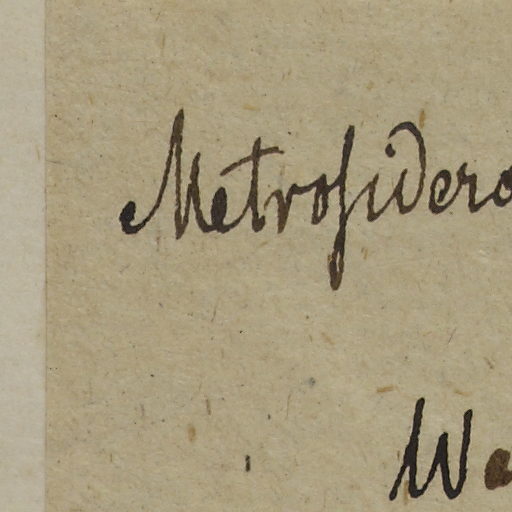 Metroſidero
Wa